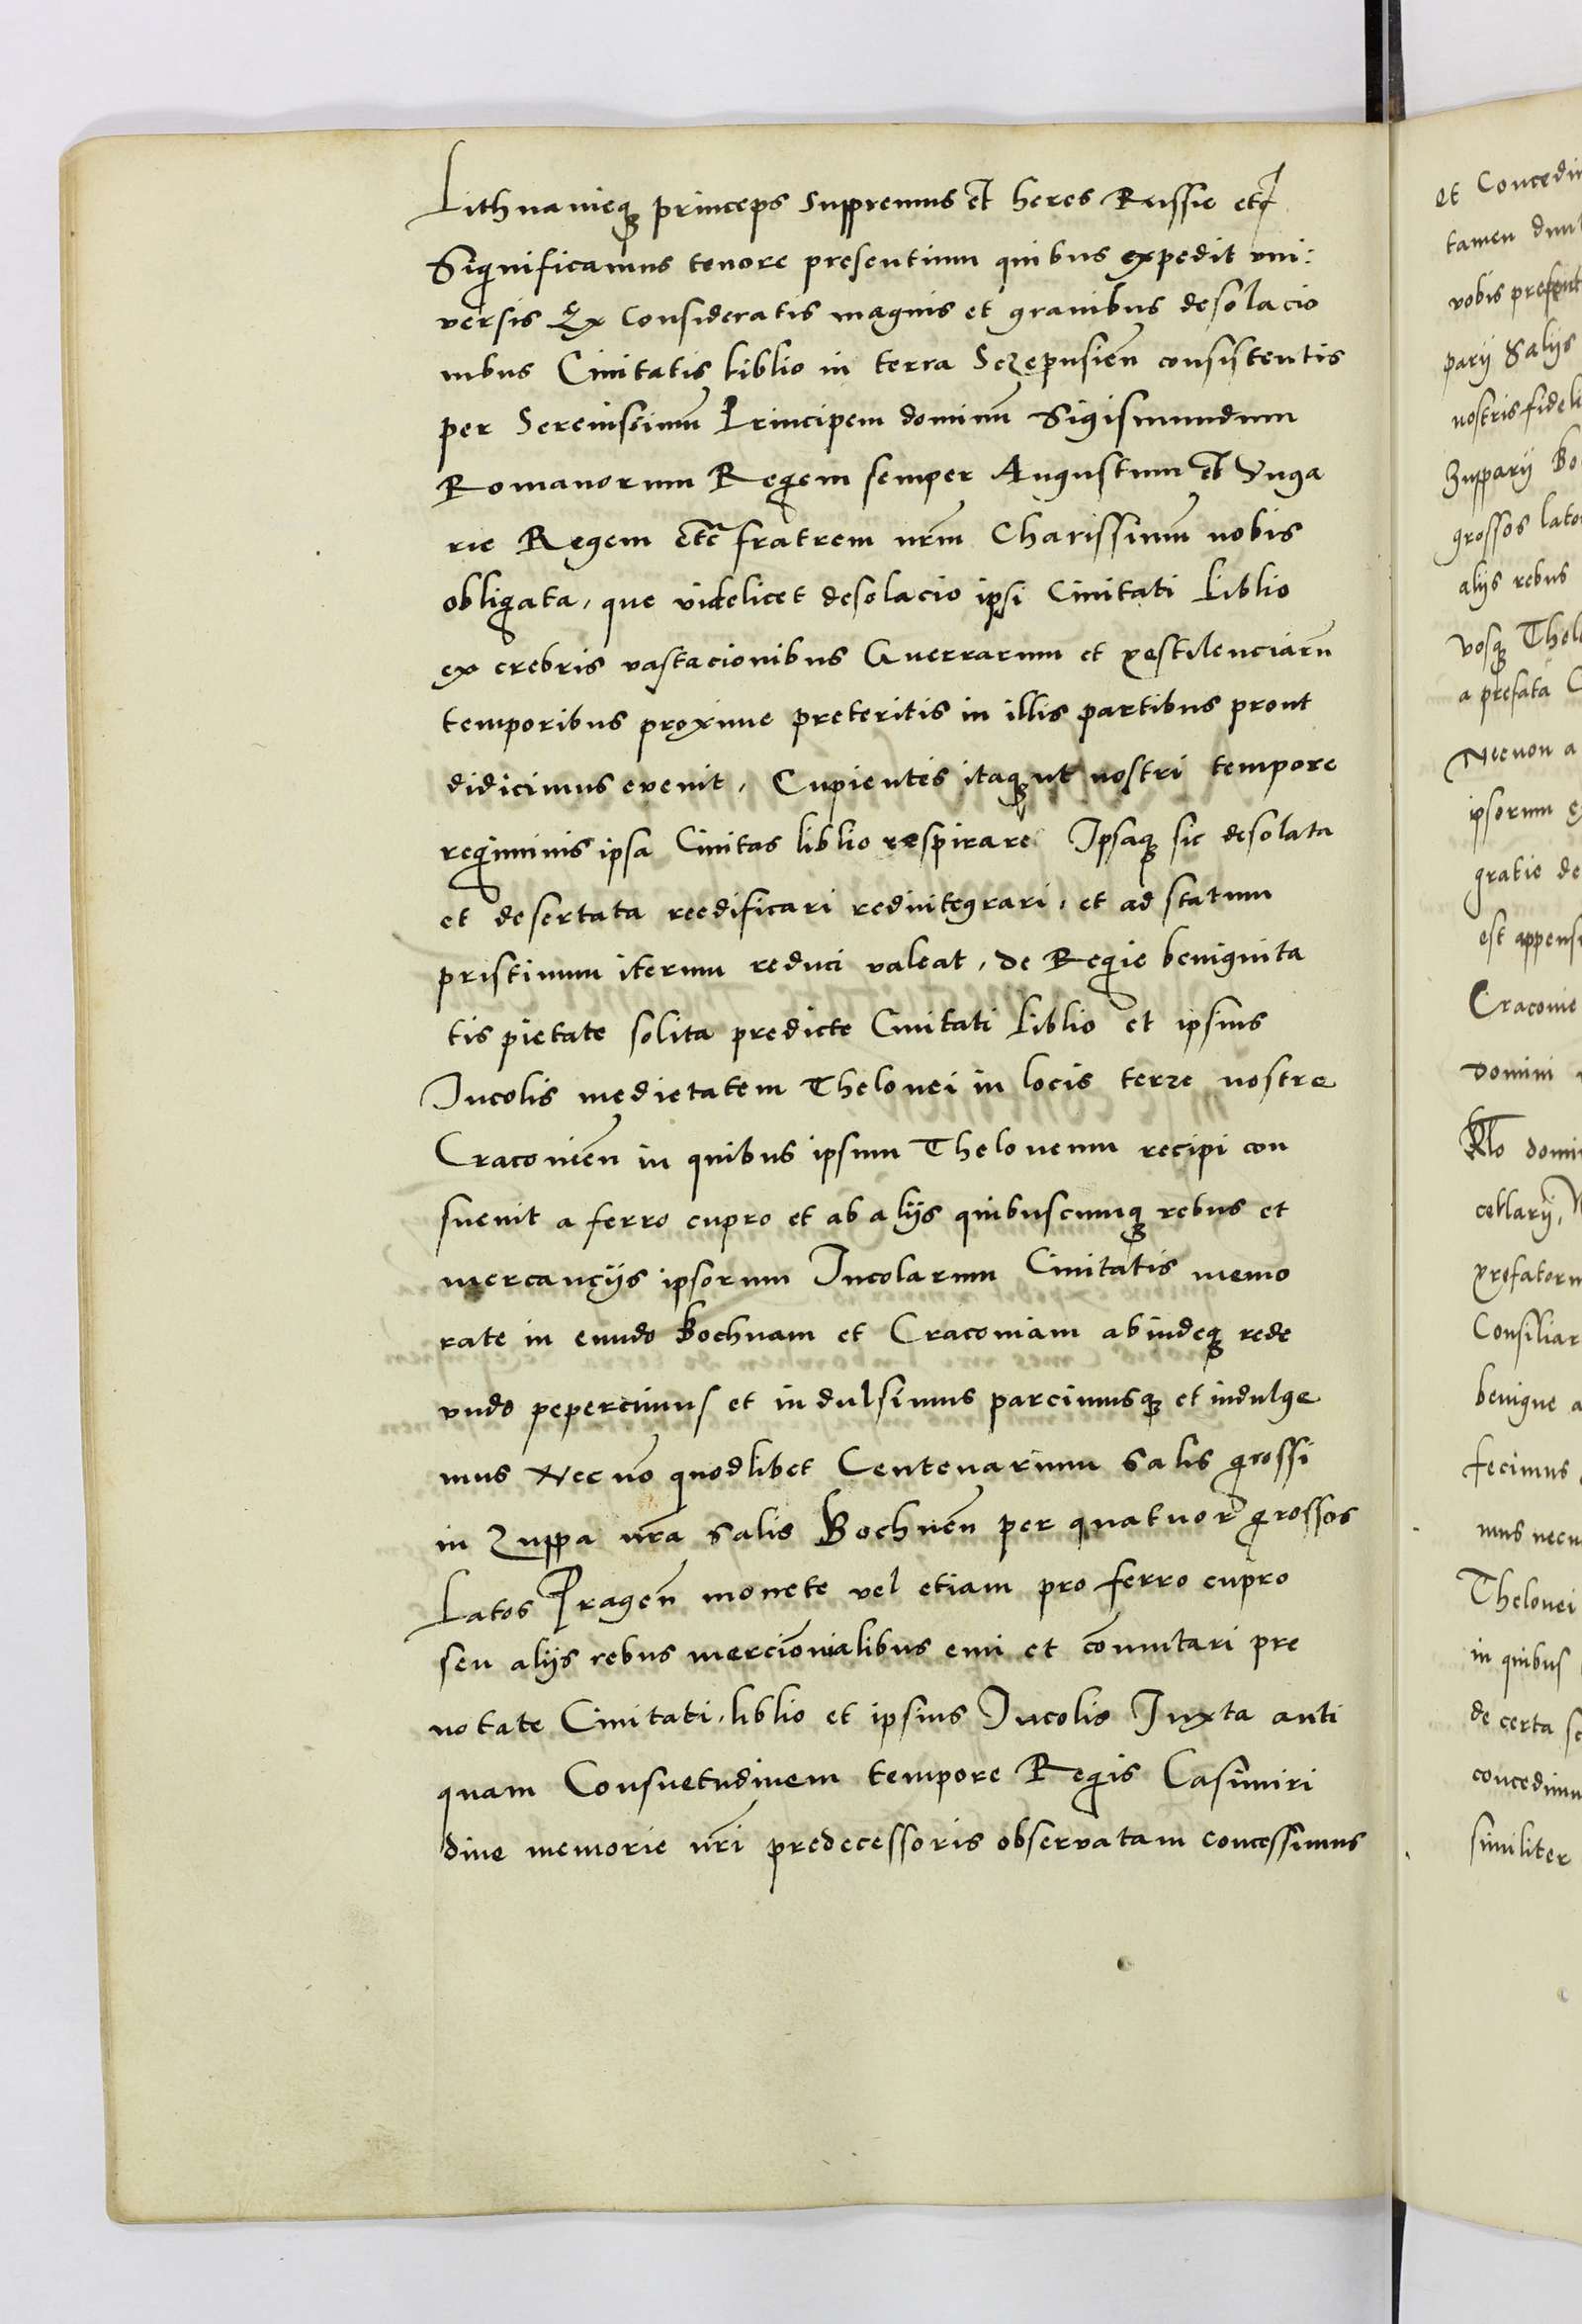 Lithuanieq₃ princeps Suppremus et heres Russie etc
Significamus tenore presentium quibus expedit vni:
versis Ex Consideratis magnis et gravibus desolacio
nibus Civitatis Liblio in terra Sczepusien̄ consistentis
per Serenissimum̄ Principem dominum̄ Sigismundum
Romanorum Regem semper Augustum et Vnga
rie Regem etc̄ fratrem nrm̄ Charissimum̄ nobis
obligata, que videlicet desolacio ipsi Civitati Liblio
ex crebris vastacionibus Guerrarum et pestilenciarū
temporibus proxime preteritis in illis partibus prout
didicimus evenit, Cupientes itaq₃ ut nostri tempore
regiminis ipsa Civitas liblio respirare Ipsaq₃ sic desolata
et desertata reedificari redintegrari, et ad statum
pristinum iterum reduci valeat, de Regie benignita
tis pietate solita predicte Civitati Liblio et ipsius
Incolis medietatem Thelonei in locis terre nostre
Cracovien̄ in quibus ipsum Theloneum recipi con
suevit a ferro cupro et ab aliis quibuscumq₃ rebus et
mercancijs ipsorum Incolarum Civitatis memo
rate in eundo Bochnam et Cracoviam abindeq₃ rede
undo pepercimus et indulsimus parcimusq₃ et indulge
mus Nec nō quodlibet Centenarium Salis grossi
in Zuppa nrā salis Bochnen̄ per quatuor grossos
Latos Pragen̄ monete vel etiam pro ferro cupro
seu alijs rebus mercionialibus emi et cōmutari pre
notate Civitati, liblio et ipsius Incolis Iuxta anti
quam Consuetudinem tempore Regis Casimiri
dive memorie nrī predecessoris observatam concessimus
et Concedi
tamen dum
vobis present
parij Salis
nostris fidel
Zupparij Bo
grossos lato
alijs rebus
vosq₃ Thel
a prefata C
Necnon a
ipsorum
gratie de
est appens
Cracovie
Domini
Rlo domi
cellarij,
prefator
Consiliar
benigne a
fecimus
mus necn
Thelonei
in quibus
de certa sc
concedimu
similiter